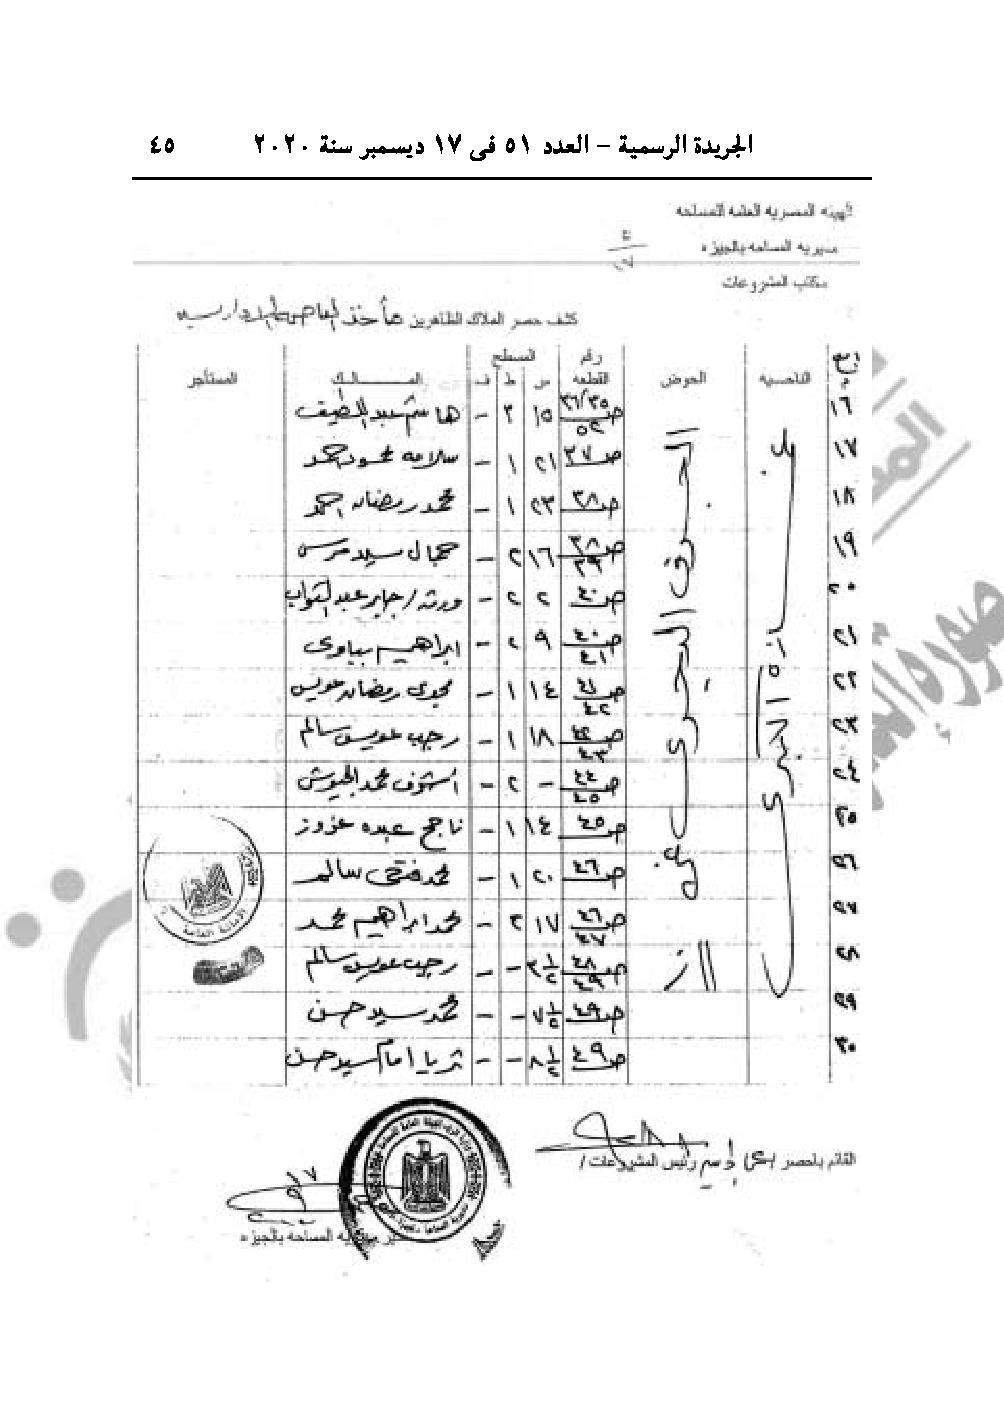 الجريدة الرسمية – العدد ٥١ فى ١٧ ديسمبر سنة ٢٠٢٠ ٤٥
الهيئه المصريه العامه للمساحه
مديريه المساحه بالجيزه
مكتب المشروعات
كشف حصر الملاك الظاهرين مأخذ
الناحيه الحوض رقم القطعه المسطح س ط ف المالك المستأجر
١٦ ص ٣٦/٣٥ ٥٢ ١٥ ٢ – هاشم عبد اللطيف
١٧ ص ٣٧ ٢١ ١ – سلامه محمود احمد
١٨ ص ٣٨ ٢٣ ١ – محمد رمضان احمد
١٩ ص ٣٨ ٣٩ ١٦ ٢ – جمال سيد مرسى
٢٠ ص ٤٠ ٢ ٢ – ورثه / جابر عبد التواب
٢١ ص ٤٠ ٤١ ٩ ٢ – ابراهيم بباوى
٢٢ ص ٤١ ٤٢ ١٤ ١ – مجدى رمضان عويس
٢٣ ص ٤٢ ٤٣ ١٨ ١ – رجب عويس سالم
٢٤ ص ٤٤ ٤٥ – ٢ – محمد الجيوشى
٢٥ ص ٤٥ ١٤ ١ – ناجح عبده عزوز
٢٦ ص ٤٦ ٢٠ ١ – محمد فتحى سالم
٢٧ ص ٤٦ ٤٧ ١٧ ٢ – محمد ابراهيم محمد
٢٨ ص ٤٨ ٤٩ ٣ ١/٢ – – رجب عويس سالم
٢٩ ص ٤٩ ٧ ١/٢ – – محمد سيد حسن
٣٠ ص ٤٩ ٨ ١/٢ – – ثريا امام سيد حسن
القائم بلحصر رئيس المشروعات /
مدير مديريه المساحه بالجيزه